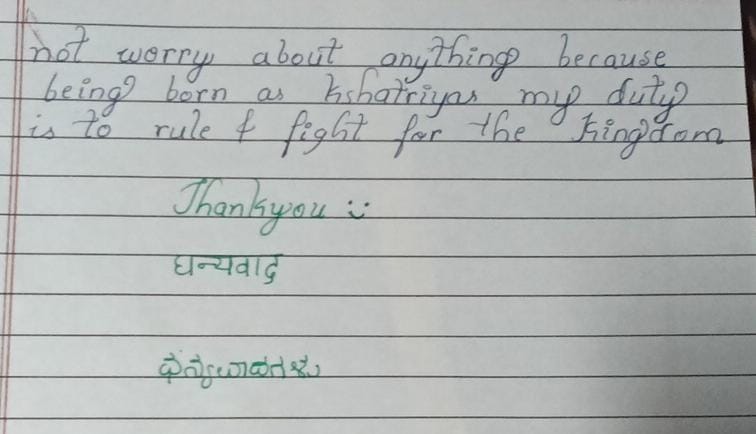 not worry about anything because
being born as kshatriyas my duty
is to rule & fight for the kingdom
Thankyou :-
धन्यवाद
ಧನ್ಯವಾದಗಳು